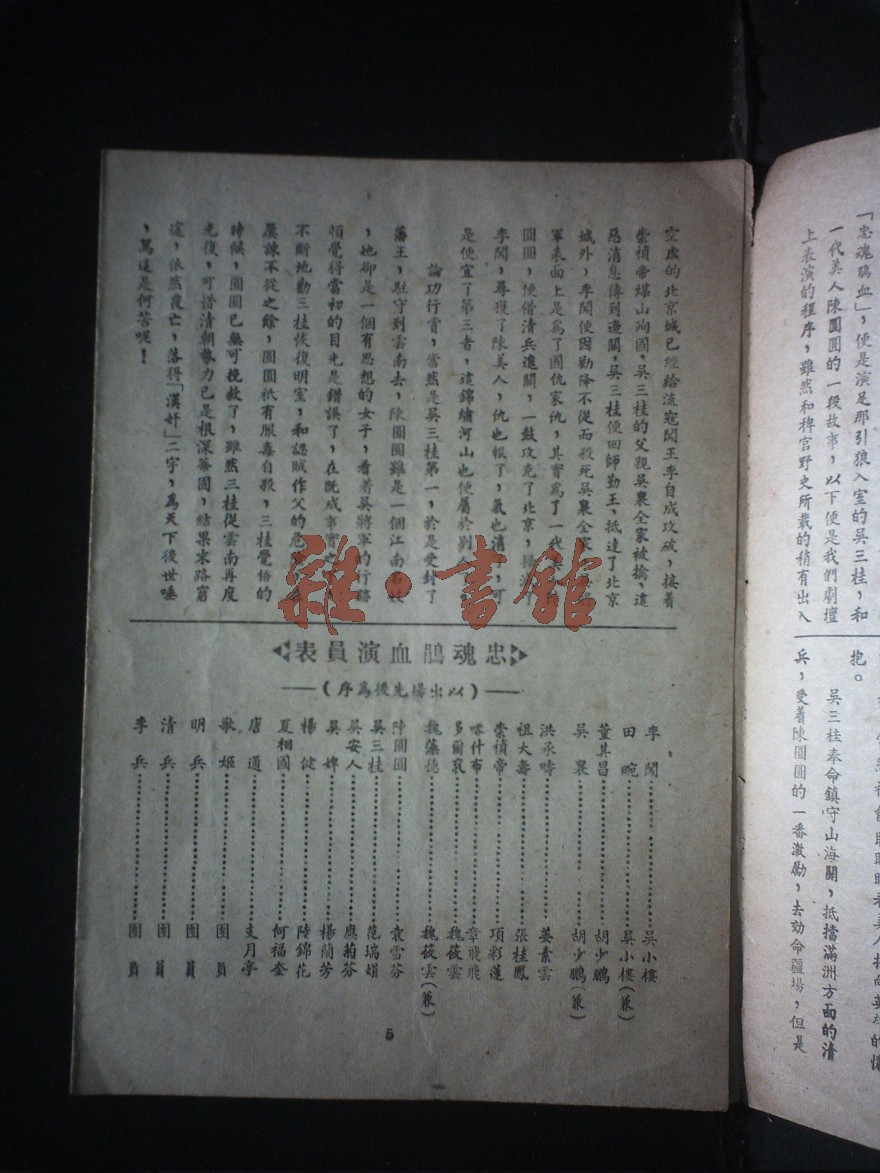 「忠魂鵑血」，便是演足那引狼入室的吳三桂，和
一代美人陳圓圓的一段故事，以下便是我們劇壇
上表演的程序，雖然和稗官野史所載的稍有出入
抱。
吳三桂奉命鎮守山海關，抵擋滿洲方面的清
兵，受着陳圓圓的一番激勵，去効命疆場，但是
空虛的北京城已經給流寇闖王李自成攻破，接着
崇禎帝煤山殉國，吳三桂的父親吳襄全家被擒，這
惡消息傳到邊關，吳三桂便回師勤王，抵達了北京
城外，李闖便因勸降不從而殺死吳襄全家
軍表面上是爲了國仇家仇，其實爲了一代美
圓圓，便借清兵進關，一鼓攻克了北京，
李闖，尋獲了陳美人，仇也報了，氣也消了，可
是便宜了第三者，這錦繡河山也便屬於別
論功行賞，當然是吳三桂第一，於是受封了
藩王，駐守到雲南去，陳圓圓雖是一個江南名妓
，她卻是一個有思想的女子，看着吳將軍的行踏
頓覺得當初的目光是錯誤了，在既成事實之
不斷地勸三桂恢復明室，和認賊作父的危
屢諫不從之餘，圓圓祇有服毒自殺，三桂覺悟的
時候，圓圓已無可挽救了，雖然三桂從雲南再度
光復，可惜清朝勢力已是根深蒂固，結果末路窮
途，依然覆亡，落得「漢奸」二字，爲天下後世唾
，罵這是何苦呢！
雜·書館
忠魂鵑血演員表
（以出場先後爲序）
李闖……吳小樓
田畹……吳小樓（兼）
董其昌……胡少鵬
吳襄……胡少鵬（兼）
洪承疇……姜素雲
祖大壽……張桂鳳
崇禎帝……項彩蓮
喀什布……章飛飛
多爾袞……魏筱雲
魏藻德……魏筱雲（兼）
陳圓圓……袁雪芬
吳三桂……范瑞娟
吳安人……應菊芬
吳婢……楊蘭芳
楊健……陸錦花
夏相國……何福奎
唐通……支月亭
歌姬……團員
明兵……團員
清兵……團員
李兵……團員
5